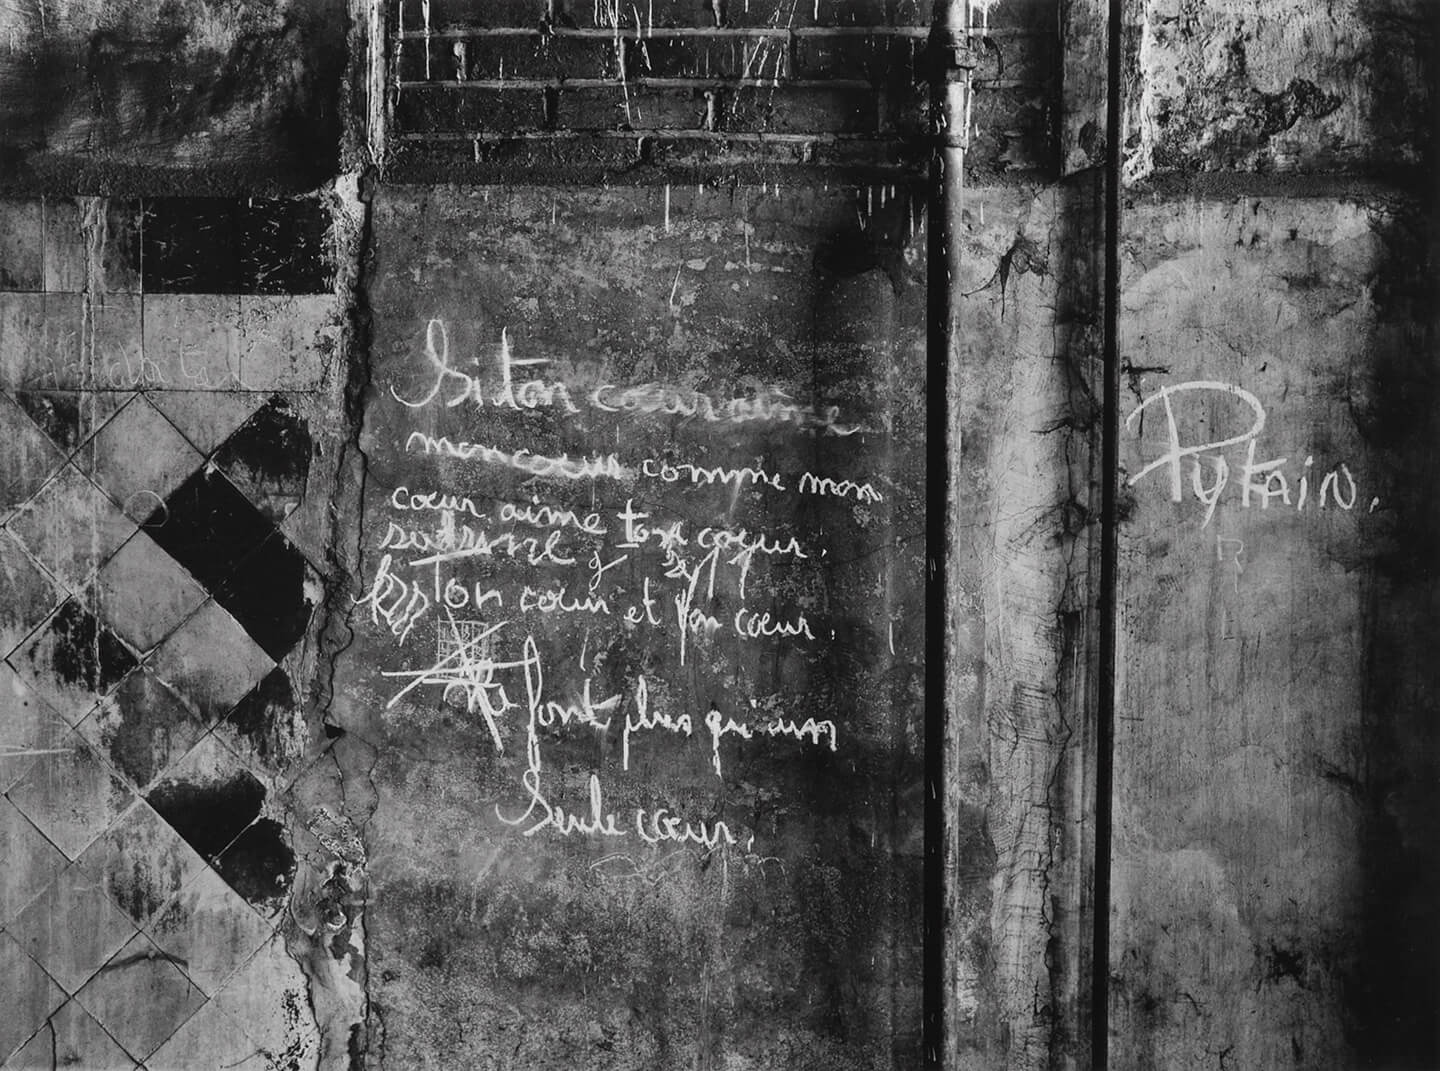 Si ton cœur aime
mon cœur comme mon
cœur aime ton cœur.
Ton cœur et mon cœur.
Ne font plus qu'un
Seule cœur.
Putain.